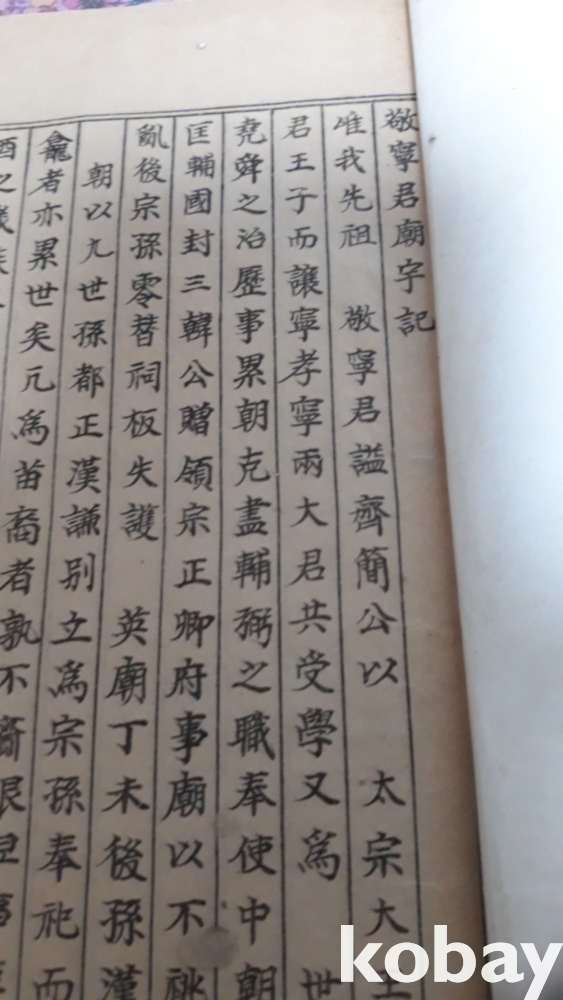 敬寧君廟宇記
唯我先祖 敬寧君謚齊簡公以 太宗大王
君王子而讓寧孝寧兩大君共受學又爲 世
堯舜之治歷事累朝克盡輔弼之職奉使中朝
匡輔國封三韓公贈領宗正卿府事廟以不祧
亂後宗孫零替祠板失護 英廟丁未後孫漢
朝以九世孫都正漢謙別立爲宗孫奉祀而
龕者亦累世矣凡爲苗裔者孰不齎恨
之
kobay